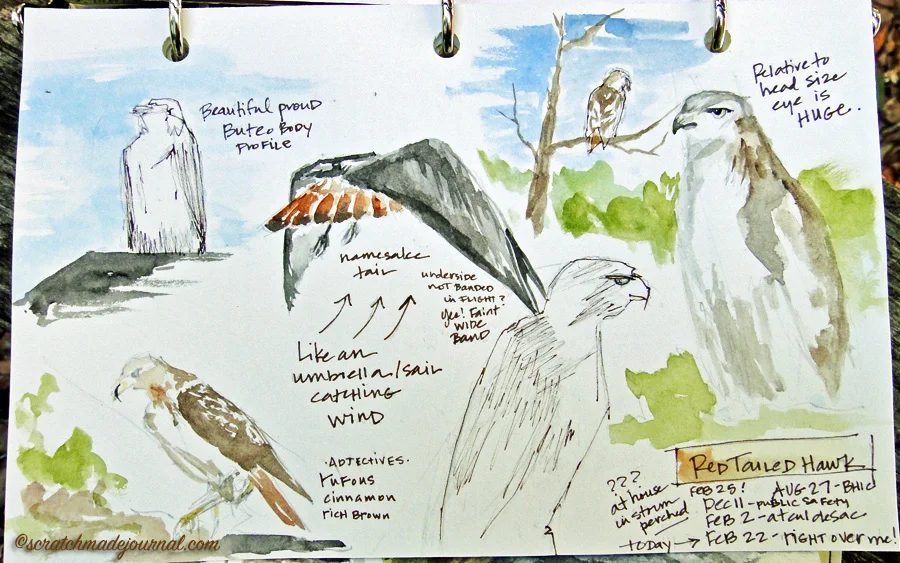 Beautiful proud
Buteo Body
Profile
Relative to
head size
eye is
HUGE.
namesake
tail
underside
NOT BANDED
in FLIGHT?
Yes! Faint
WIDE
BAND
Like an
umbrella/sail
catching
wind
·ADJECTIVES·
rufous
cinnamon
rich Brown
???
at house
in storm
perched
RED TAILED HAWK
FEB 25! AUG-27-BHIC
DEC 11-PUBLIC SAFETY
FEB 2-at cul de sac
today → FEB 22-right over me!
©scratchmadejournal.com